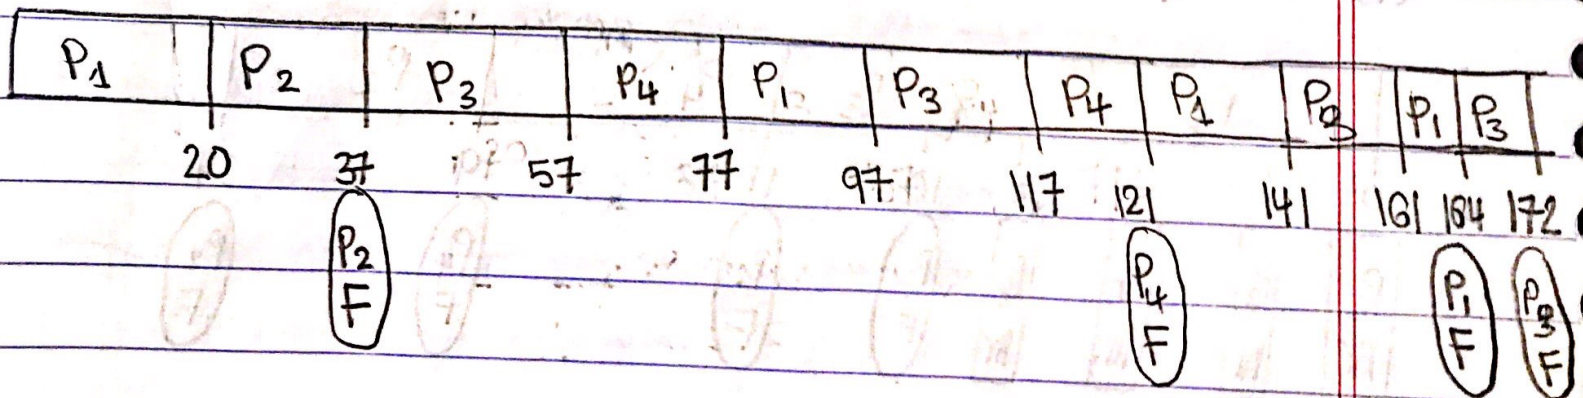 P1 P2 P3 P4 P1 P3 P4 P1 P3 P1 P3
20 37 57 77 97 117 121 141 161 164 172
P2 P4 P1 P3
F F F F